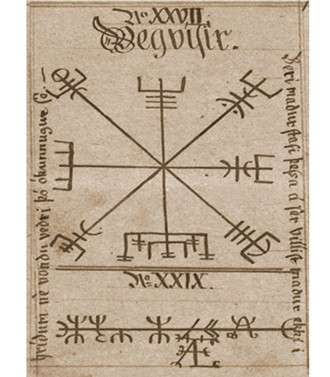 No. XXVII.
Vegvísir.
Beri madur stafi þessa á sér villist madur ekki í
hrídum né vondu vedri þó ókunnugur sé.
No. XXIX.